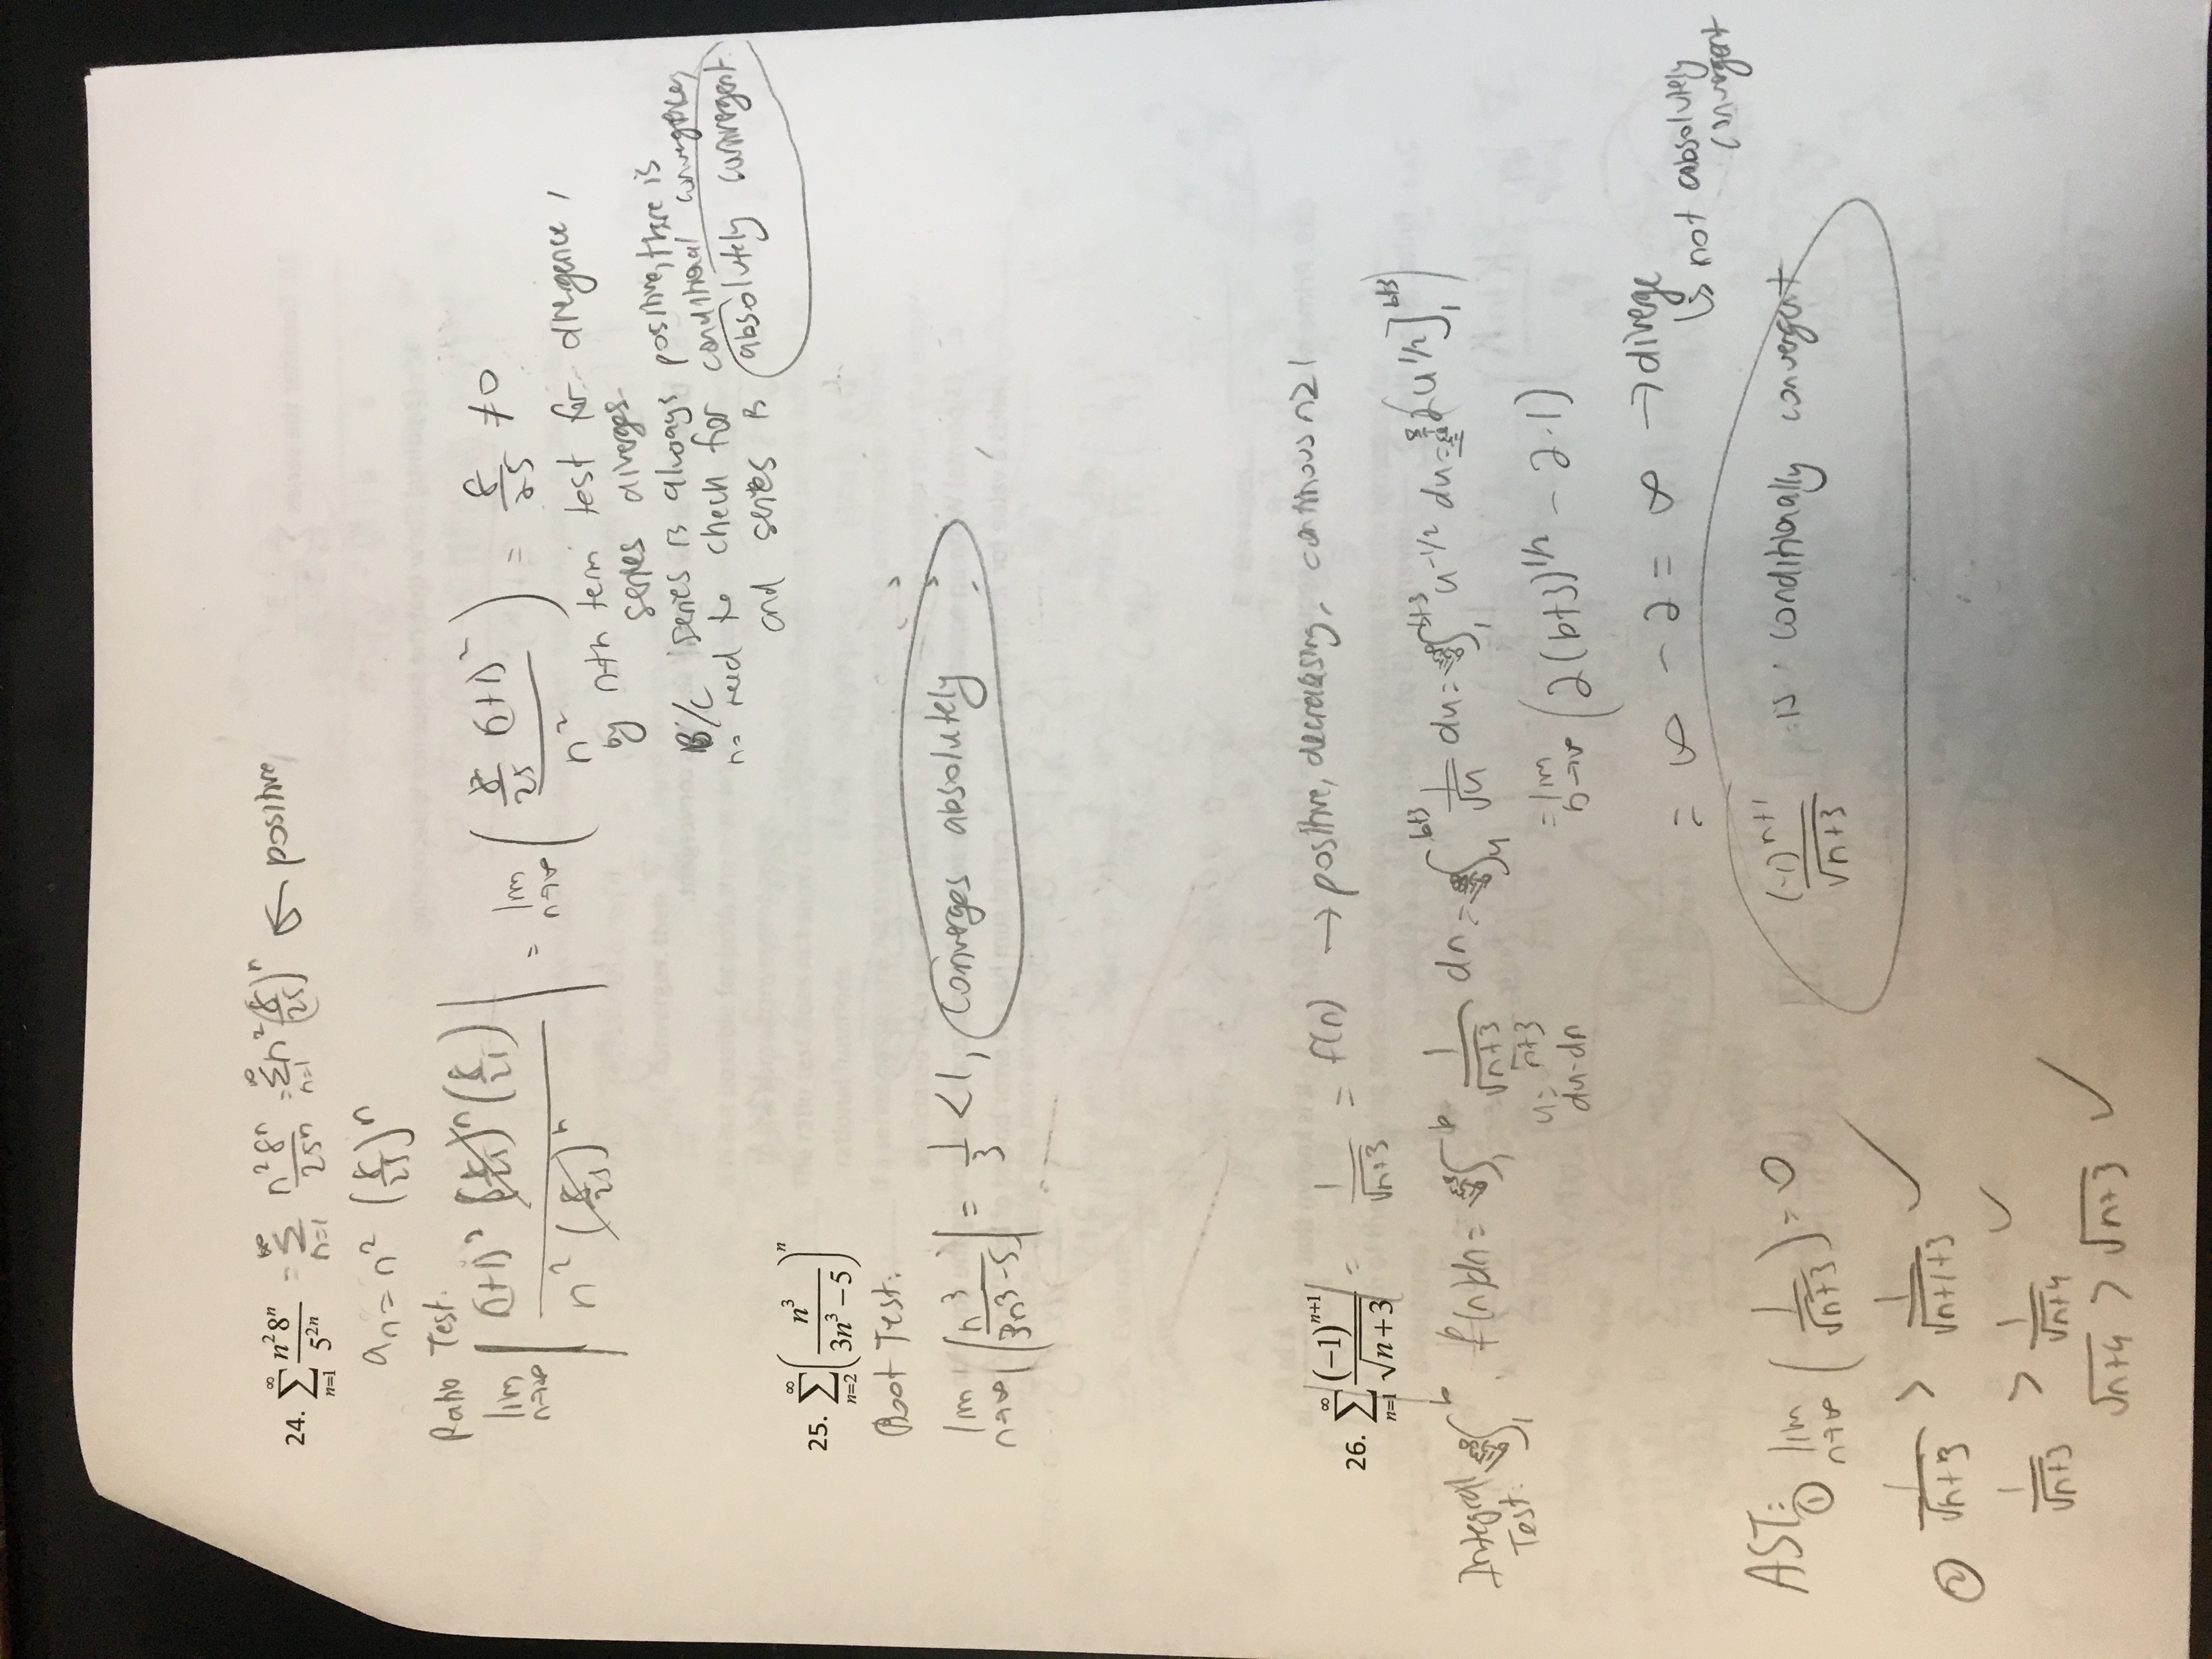 24. ∑_{n=1}^{∞} n²8ⁿ/5²ⁿ = ∑_{n=1}^{∞} n²8ⁿ/25ⁿ = ∑_{n=1}^{∞} n²(8/25)ⁿ ← positive
aₙ = n² (8/25)ⁿ
Ratio Test:
lim_{n→∞} | (n+1)² (8/25)ⁿ (8/25) / n² (8/25)ⁿ | = lim_{n→∞} ( 8/25 (n+1)² / n² ) = 8/25 ≠ 0
by nth term test for divergence,
series diverges
B/c series is always positive, there is
no need to check for conditional convergence,
and series is absolutely convergent
25. ∑_{n=2}^{∞} ( n³/(3n³ − 5) )ⁿ
Root Test:
lim_{n→∞} | n³/(3n³−5) | = 1/3 < 1, converges absolutely
26. ∑_{n=1}^{∞} | (−1)ⁿ⁺¹/√(n+3) | = 1/√(n+3) = f(n) → positive, decreasing, continous n≥1
Integral
Test: lim_{b→∞} ∫₁ᵇ f(n)dn = lim_{b→∞} ∫₁ᵇ 1/√(n+3) dn = lim_{b→∞} ∫₄ᵇ⁺³ 1/√u du = lim_{b→∞} ∫₁ᵇ⁺³ u^(-1/2) du = lim_{b→∞} (2u^(1/2)]₁ᵇ⁺³)
u = n+3
du=dn
= lim_{b→∞} (2(b+3)^(1/2) − 2·1)
= ∞ − 2 = ∞ → diverge
↳ not absolutely
convergent
AST: ① lim_{n→∞} ( 1/√(n+3) ) = 0
(−1)ⁿ⁺¹/√(n+3) is conditionally convergent
② 1/√(n+3) > 1/√(n+1+3) ✓
1/√(n+3) > 1/√(n+4) ✓
√(n+4) > √(n+3) ✓